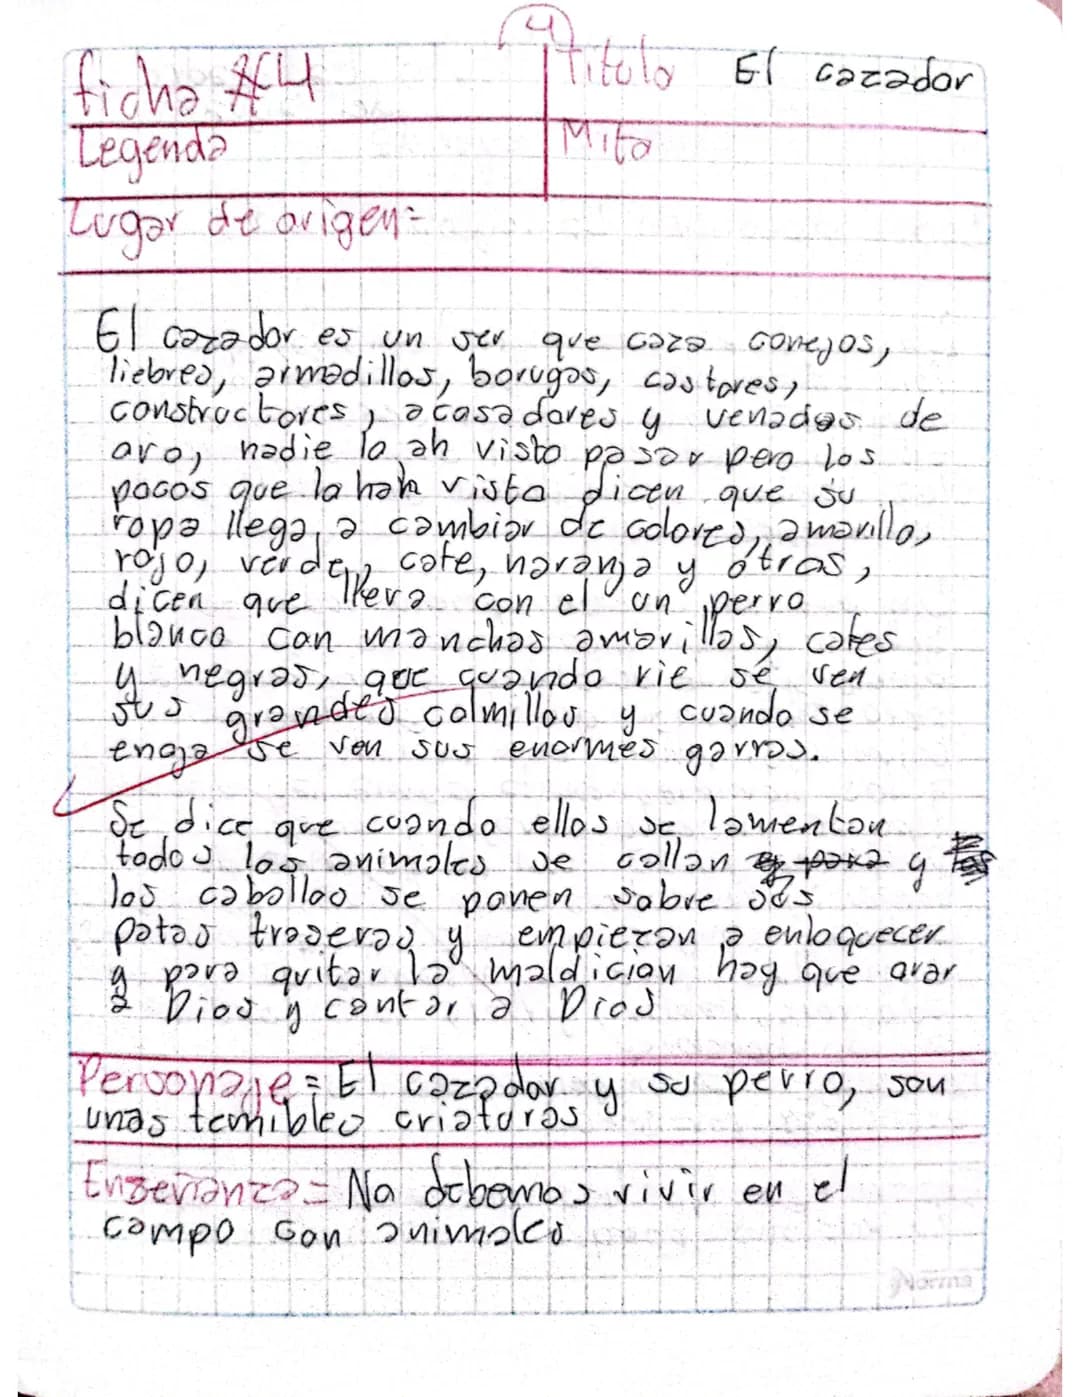 4
ficha #4 Titulo El cazador
Legenda Mito
Lugar de origen=
El cazador es un ser que caza conejos,
liebres, armadillos, borugos, castores,
constructores, acosadores y venados de
oro, nadie lo ah visto pasar pero los
pocos que lo hah visto dicen que su
ropa llega a cambiar de colores, amarillo,
rojo, verde, cafe, naranja y otros,
dicen que lleva con el un perro
blanco con manchas amarillas, cafes
y negras, que cuando rie se ven
sus grandes colmillos y cuando se
enoja se ven sus enormes garras.
Se dice que cuando ellos se lamentan
todos los animales se callan y
los caballos se ponen sobre sus
patas traseras y empiezan a enloquecer
y para quitar la maldicion hay que orar
a Dios y cantar a Dios
Personaje= El cazador y su perro, son
unas temibles criaturas
Enseñanza= No debemos vivir en el
campo con animales
Norma